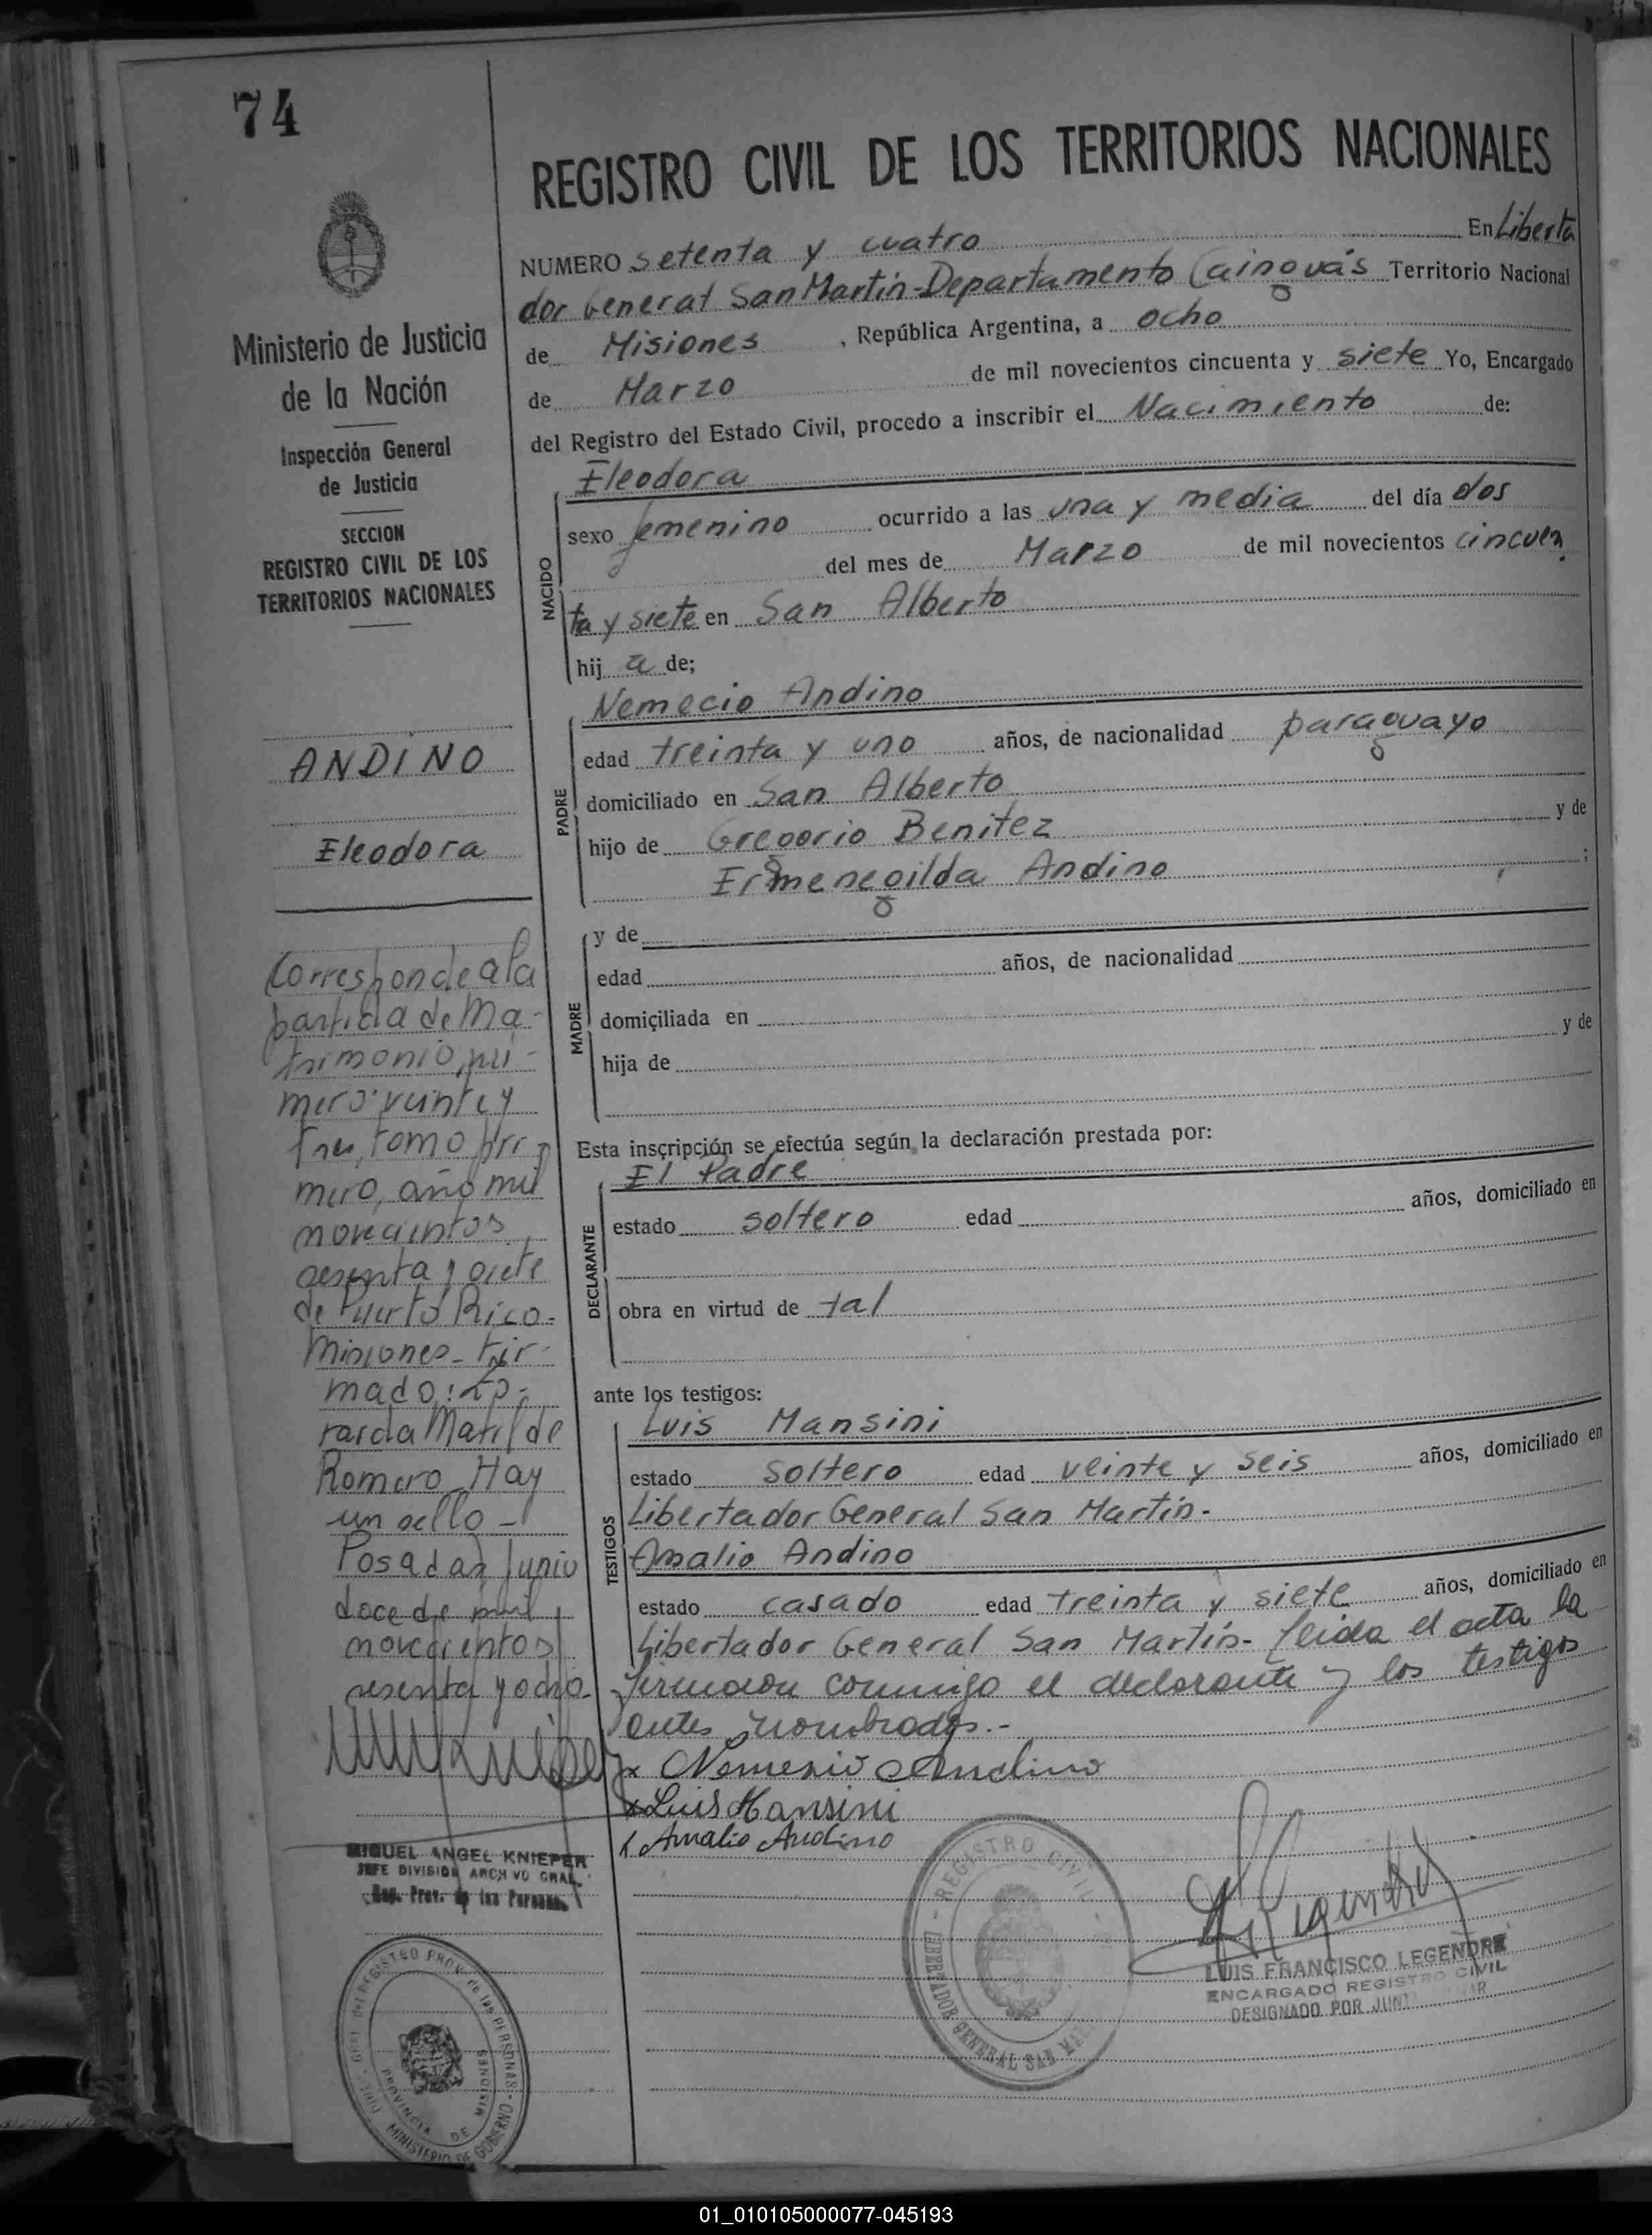 74
Ministerio de Justicia
de la Nación
Inspección General
de Justicia
SECCION
REGISTRO CIVIL DE LOS
TERRITORIOS NACIONALES
ANDINO
Eleodora
Corresponde a la
partida de Ma-
trimonio, nú-
mero veinte y
tres, tomo pri-
mero, año mil
novecientos
sesenta y siete
de Puerto Rico-
Misiones- Fir-
mado:
Matilde
Romero Hay
un sello-
Posadas Junio
doce de mil
novecientos
sesenta y ocho-
MIGUEL ANGEL KNIEPER
JEFE DIVISION ARCHIVO GRAL.
REGISTRO CIVIL DE LOS TERRITORIOS NACIONALES
NUMERO setenta y cuatro En Liberta
dor General San Martín-Departamento Cainguás Territorio Nacional
de Misiones, República Argentina, a ocho
de Marzo de mil novecientos cincuenta y siete Yo, Encargado
del Registro del Estado Civil, procedo a inscribir el Nacimiento de:
NACIDO
Eleodora
sexo femenino ocurrido a las una y media del día dos
del mes de Marzo de mil novecientos cincuen
ta y siete en San Alberto
hija de;
PADRE
Nemecio Andino
edad treinta y uno años, de nacionalidad paraguayo
domiciliado en San Alberto
hijo de Gregorio Benitez y de
Ermenegilda Andino ;
MADRE
y de
edad años, de nacionalidad
domiciliada en
hija de y de
Esta inscripción se efectúa según la declaración prestada por:
DECLARANTE
El Padre
estado soltero edad años, domiciliado en
obra en virtud de tal
ante los testigos:
TESTIGOS
Luis Mansini
estado soltero edad veinte y seis años, domiciliado en
Libertador General San Martín-
Amalio Andino
estado casado edad treinta y siete años, domiciliado en
Libertador General San Martín- Leída el acta la
firmaron conmigo el declarante y los testigos
antes nombrados.-
x Nemesio Andino
x Luis Mansini
x Amalio Andino
REGISTRO CIVIL
LIBERTADOR GENERAL SAN MAR
LUIS FRANCISCO LEGENDRE
ENCARGADO REGISTRO CIVIL
DESIGNADO POR
REGISTRO PROV. de las PERSONAS
PROVINCIA DE MISIONES
MINISTERIO DE GOBIERNO
01_010105000077-045193